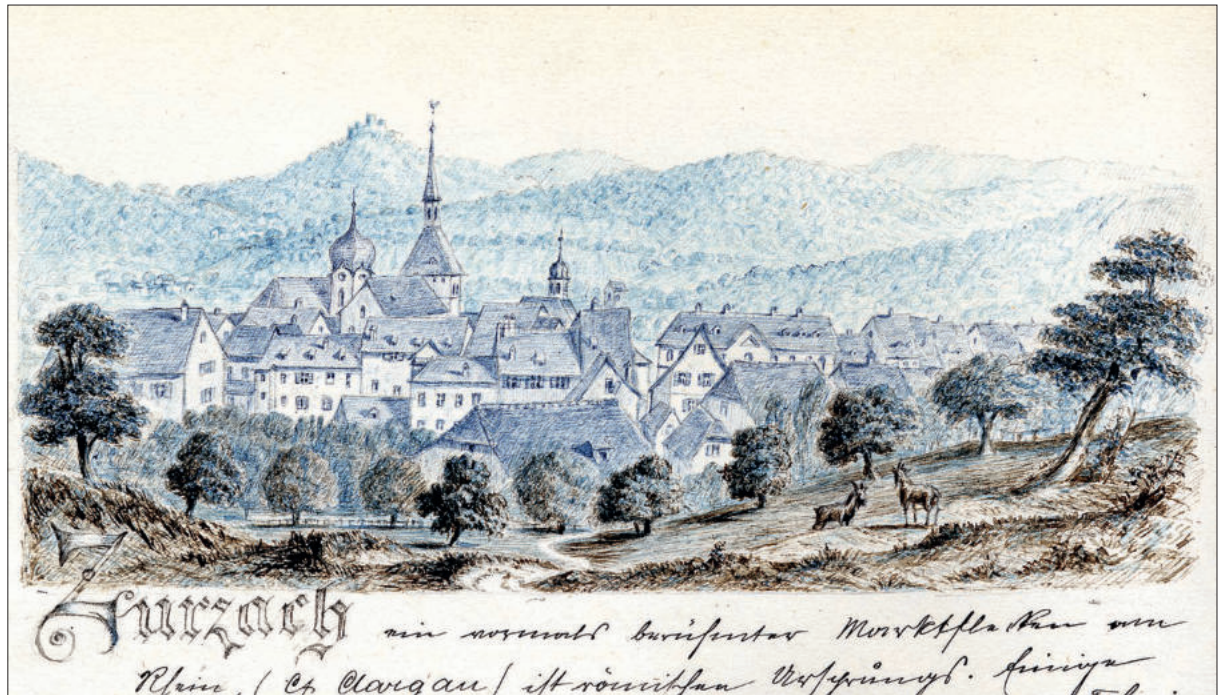 Zurzach ein vormals berühmter Marktflecken am
Rhein, (Ct. Aargau) ist römischen Ursprungs. Einige